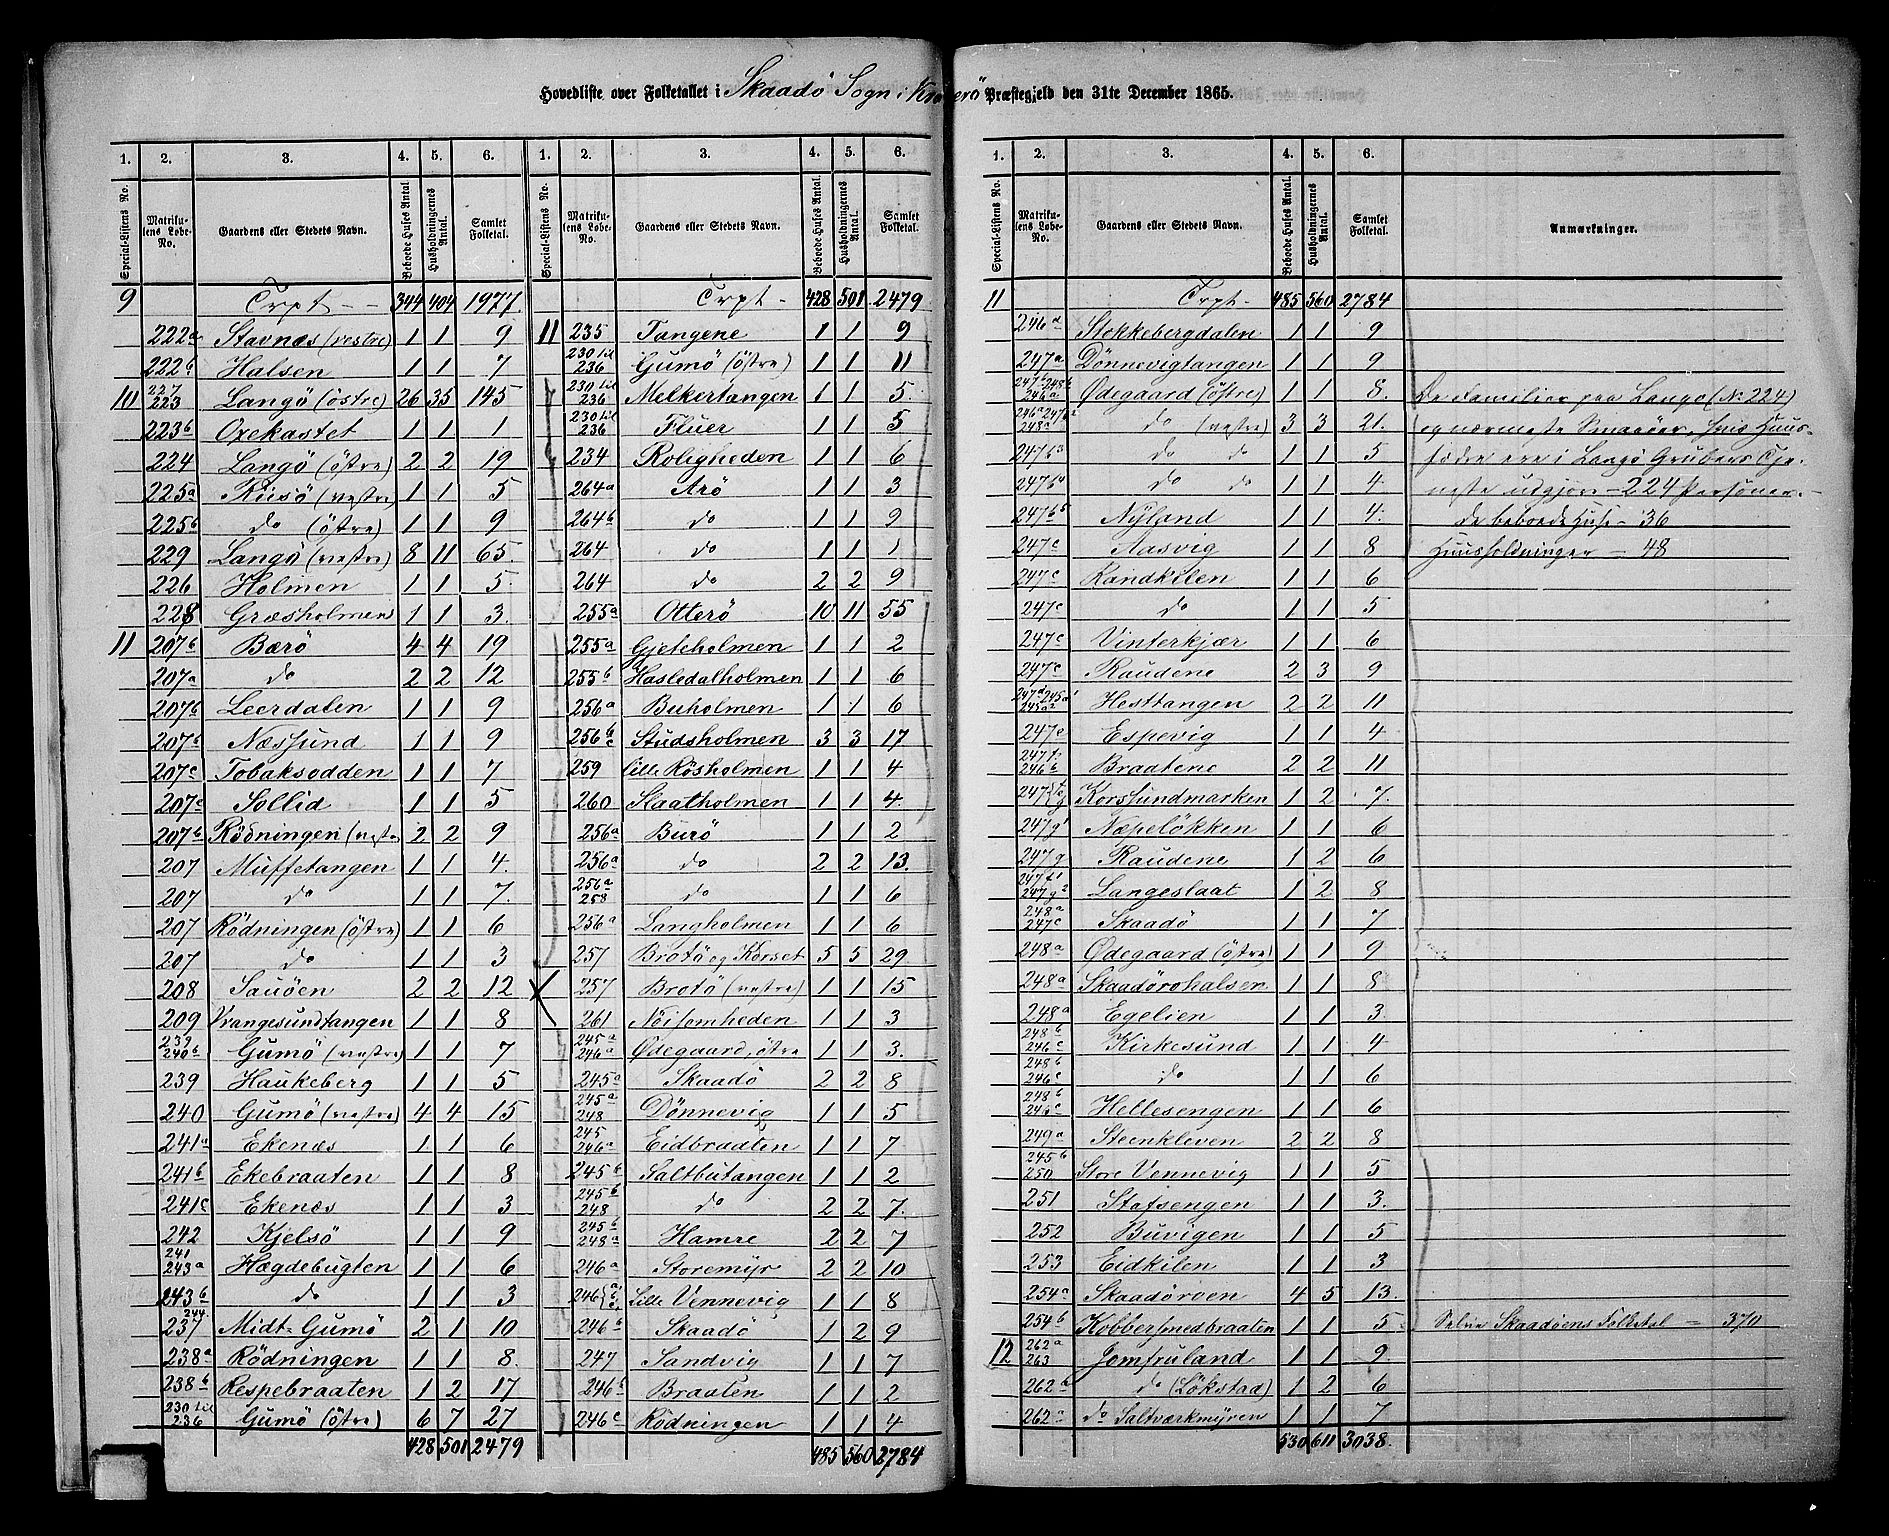 Hovedliste over Folketallet i Skaadö Sogn i Kragerö Præstegjeld den 31te December 1865.
1. 2. 3. 4. 5. 6.
Special-Listens No. Matrikulens Løbe-No. Gaardens eller Stedets Navn. Beboede Huses Antal. Husholdningernes Antal. Samlet Folketal.
9 Trpt - - 344 404 1977
222a Stavnæs (vestre) 1 1 9
222b Halsen 1 1 7
10 223 Langö (östre) 26 35 145
223b Oxekastet 1 1 1
224 Langö (östre) 2 2 19
225a Risö (vestre) 1 1 5
225b do (östre) 1 1 9
229 Langö (vestre) 8 11 65
226 Holmen 1 1 5
228 Græsholmen 1 1 3
11 207b Bærö 4 4 19
207a do 2 2 12
207b Leerdalen 1 1 9
207b Næssund 1 1 9
207c Tobaksodden 1 1 7
207c Sollid 1 1 5
207b Rödningen (vestre 2 2 9
207 Muffetangen 1 1 4
207 do 1 1 7
207 Rödningen (östre) 1 1 6
207 do 1 1 3
208 Sauöen 2 2 12
209 Vrangesundtangen 1 1 8
239 240b Gumö (vestre) 1 1 7
239 Haukeberg 1 1 5
240 Gumö (vestre) 4 4 15
241a Ekenæs 1 1 6
241b Ekebraaten 1 1 8
241c Ekenæs 1 1 3
242 Kjelsö 1 1 9
241 243a Hægdebugten 1 1 6
243b do 1 1 3
244 237 Midt-Gumö 2 1 10
238a Rödningen 1 1 8
238b Respebraaten 1 2 17
230 til 236 Gumö (östre) 6 7 27
428 501 2479
1. 2. 3. 4. 5. 6.
Special-Listens No. Matrikulens Løbe-No. Gaardens eller Stedets Navn. Beboede Huses Antal. Husholdningernes Antal. Samlet Folketal.
Trpt - 428 501 2479
11 235 Tangene 1 1 9
230 til 236 Gumö (östre) 1 1 11
230 til 236 Melkertangen 1 1 5
230 til 236 Fluer 1 1 5
234 Roligheden 1 1 6
264a Arö 1 1 3
264b do 1 1 9
264 do 1 1 1
264 do 2 2 9
255a Otterö 10 11 55
255a Gjeteholmen 1 1 2
255b Hasledalholmen 1 1 6
256a Buholmen 1 1 6
256b c Studsholmen 3 3 17
259 lille Rösholmen 1 1 4
260 Slaatholmen 1 1 4
256a Burö 1 1 2
256a do 2 2 13
256a 258 do 1 1 6
256a Langholmen 1 1 6
257 Brotö og Korset 5 5 29
257 Brotö (vestre) 1 1 15
261 Nöisomheden 1 1 3
245a 246a Ödegaard, östre 1 1 3
245a Skaadö 2 2 8
245a 248 Dönnevig 1 1 5
245 246a Eidbraaten 1 1 7
245b Saltbutangen 1 1 2
245b 248 do 2 2 7
245b 248a Hamre 2 2 7
246a Storemyr 2 2 10
246 Lille Vennevig 1 1 8
246b Skaadö 1 2 9
247 Sandvig 1 1 7
246b Braaten 1 1 2
246c Rödningen 1 1 4
485 560 2784
1. 2. 3. 4. 5. 6.
Special-Listens No. Matrikulens Løbe-No. Gaardens eller Stedets Navn. Beboede Huses Antal. Husholdningernes Antal. Samlet Folketal. Anmærkninger.
11 Trpt - 485 560 2784
246d Stokkebergdalen 1 1 9
247a Dönnevigtangen 1 1 9
247a 248b 246a Ödegaard (östre) 1 1 8 De Familier paa Langö (No 224)
248a do (vestre) 3 3 21 og nærmeste Smaaöer, hvis Huus-
247b3 do do 1 1 5 fædre ere i Langö Grubers Tje-
247b4 do do 1 1 4 neste udgjøre - 224 Personer -
247b5 Nyland 1 1 4 de beboede Huse - 36
247c Aasvig 1 1 8 Huusholdninger - 48
247c Kandkilen 1 1 6
247c do 1 1 5
247c Vinterkjær 1 1 6
247c Raudene 2 3 9
247d 245a1 245a2 Hesttangen 2 2 11
247e Espevig 1 1 4
247f 246b Braatene 2 2 11
247 Korssundmarken 1 2 7
247g1 Næpelökken 1 1 6
247g Raudene 1 2 6
247f1 247g2 Langeslaat 1 2 8
248a 247c Skaadö 1 1 7
248a Ödegaard (östre) 1 1 9
248a Skaadörohalsen 1 1 8
248a Egelien 1 1 3
248b 246c Kirkesund 1 1 4
248b 246c do 1 1 6
248b 246c Hellesengen 1 1 6
249a Steenkleven 2 2 8
245b 250 Store Vennevig 1 1 5
251 Stofsengen 1 1 3
252 Buvigen 1 1 5
253 Eidkilen 1 1 3
254a Skaadöroen 4 5 13
254b Kobbersmedbraaten 1 1 5 Selve Skaadöens Folketal = 370
12 262a 263 Jomfruland 1 1 9
262b do (Lökstad) 1 2 6
262a do Saltværkmyren 1 1 7
530 611 3038